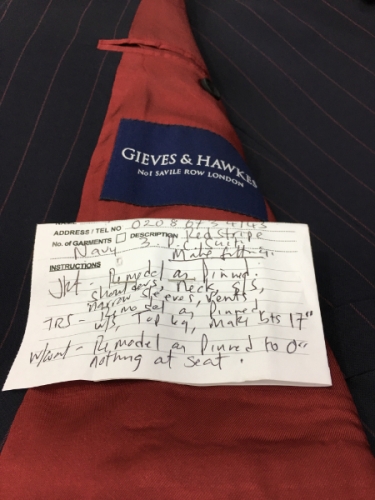 GIEVES & HAWKES
No1 SAVILE ROW LONDON
ADDRESS / TEL NO 0208 073
No. of GARMENTS DESCRIPTION Red Stripe
Navy 3. P.C. Suit
Make fittings.
INSTRUCTIONS
Jkt - Remodel as Pinned.
shoulders, Neck, S/S,
Narrow sleeves, Vents
TRS - Remodel as Pinned
W/S, Top leg, Make bts 17"
W/coat - Remodel as Pinned to 0"
nothing at seat.